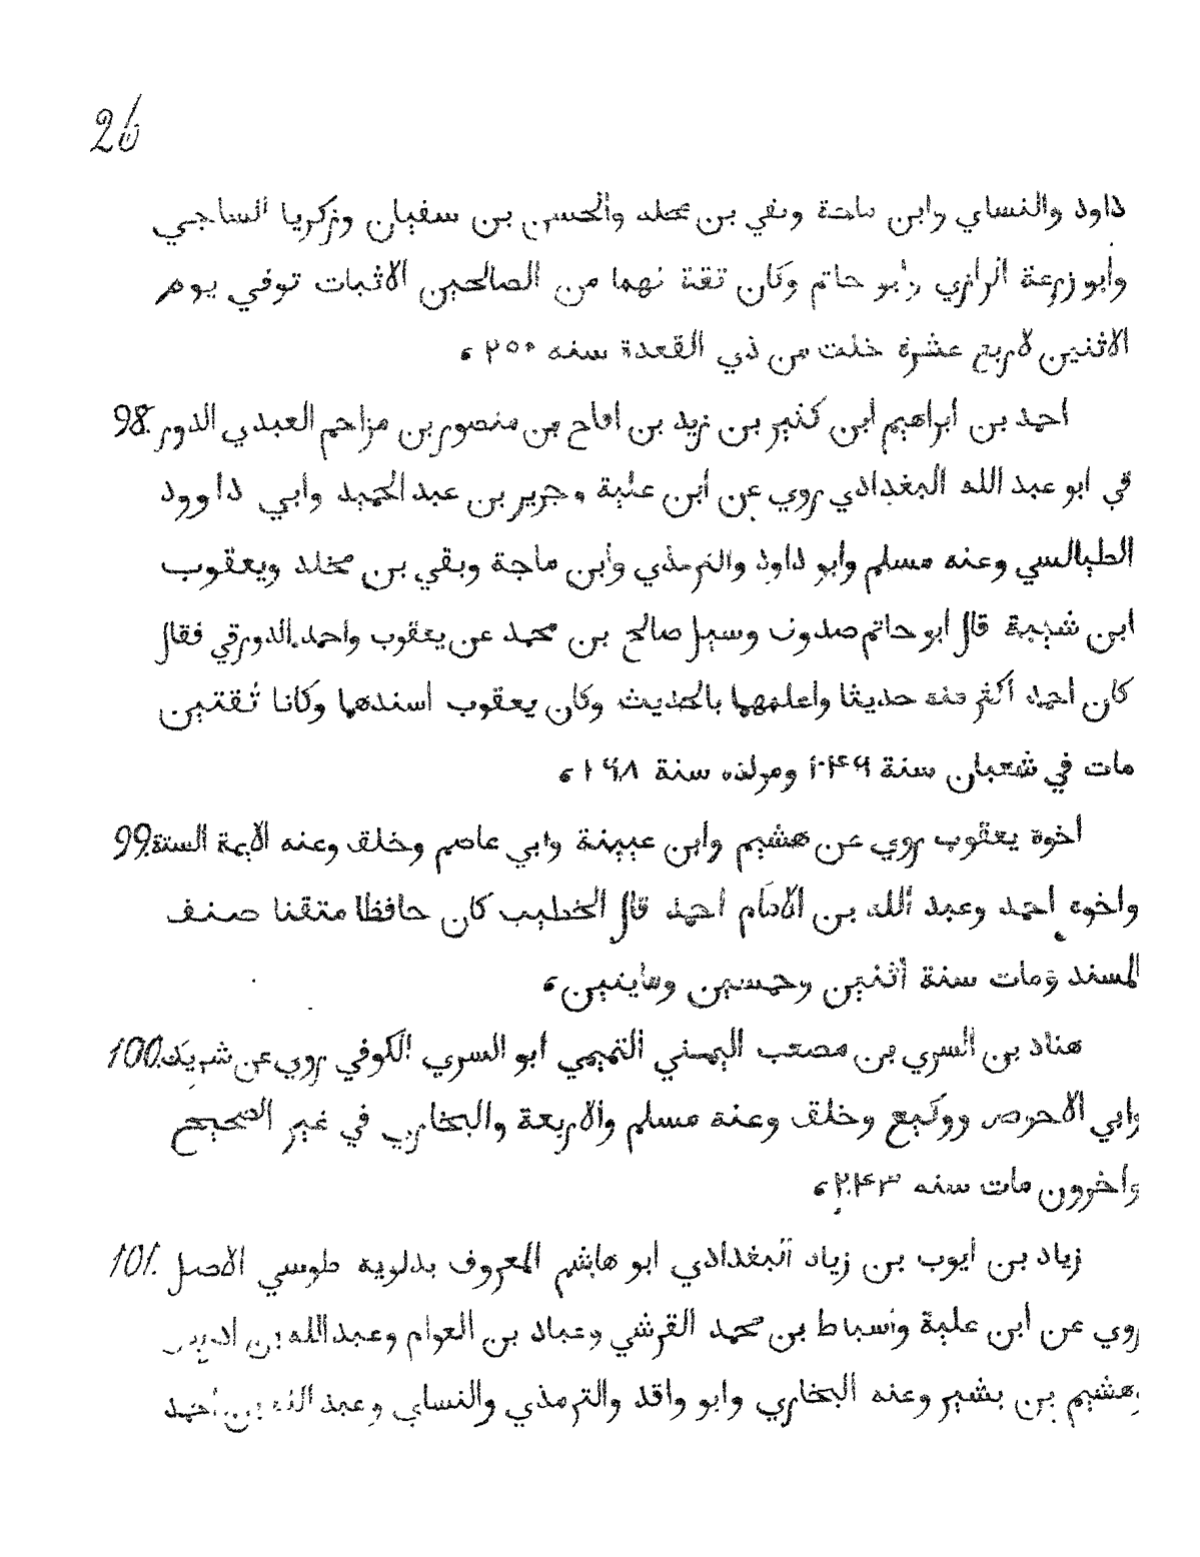 26
داود والنساي وابن ماجة وبقي بن مخلد والحسن بن سفيان وزكريا الساجي
وابو زرعة الرازي وابو حاتم وكان تقة نهما من الصالحين الاثبات توفي يوم
الاثنين لاربع عشرة خلت من ذي القعدة سنه ٢٥٠
98. احمد بن ابراهيم ابن كثير بن زيد بن افلح بن منصور بن مزاحم العبدي الدور
قي ابو عبد الله البغدادي روي عن ابن علية وجرير بن عبد الحميد وابي داوود
الطيالسي وعنه مسلم وابو داود والترمذي وابن ماجة وبقي بن مخلد ويعقوب
ابن شيبة قال ابو حاتم صدوف وسيل صالح بن محمد عن يعقوب واحمد الدورقي فقال
كان احمد اكثر منه حديثا واعلمهما بالحديث وكان يعقوب اسندهما وكانا ثقتين
مات في شعبان سنة ٢٤٦ ومولده سنة ١٦٨
99. اخوة يعقوب روي عن هشيم وابن عيينة وابي عاصم وخلق وعنه الايمة الستة
واخوه احمد وعبد الله بن الامام احمد قال الخطيب كان حافظا متقنا صنف
المسند ومات سنة اثنين وخمسين ومايتين
100. هناد بن السري بن مصعب اليمني التميمي ابو السري الكوفي روي عن شريك
وابي الاحوص ووكيع وخلق وعنه مسلم والاربعة والبخاري في غير الصحيح
واخرون مات سنه ٢٤٣
101. زياد بن ايوب بن زياد البغدادي ابو هاشم المعروف بدلويه طوسي الاصل
روي عن ابن علية واسباط بن محمد القرشي وعباد بن العوام وعبد الله بن ادريس
وهشيم بن بشير وعنه البخاري وابو واقد والترمذي والنساي وعبد الله بن احمد